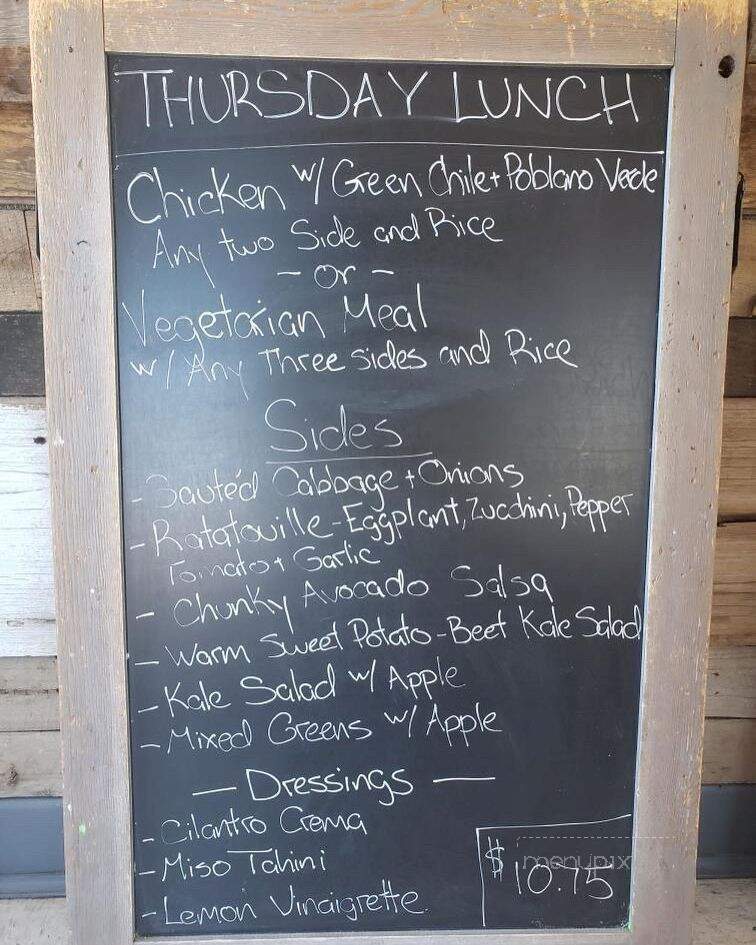 THURSDAY LUNCH
Chicken w/ Green Chile + Poblano Verde
Any two Side and Rice
- or -
Vegetarian Meal
w/ Any Three sides and Rice
Sides
- Sauteéd Cabbage + Onions
- Ratatouille - Eggplant, Zucchini, Pepper
Tomato + Garlic
- Chunky Avocado Salsa
- Warm Sweet Potato - Beet Kale Salad
- Kale Salad w/ Apple
- Mixed Greens w/ Apple
— Dressings —
- Cilantro Crema
- Miso Tahini
- Lemon Vinaigrette
$10.75
menupix